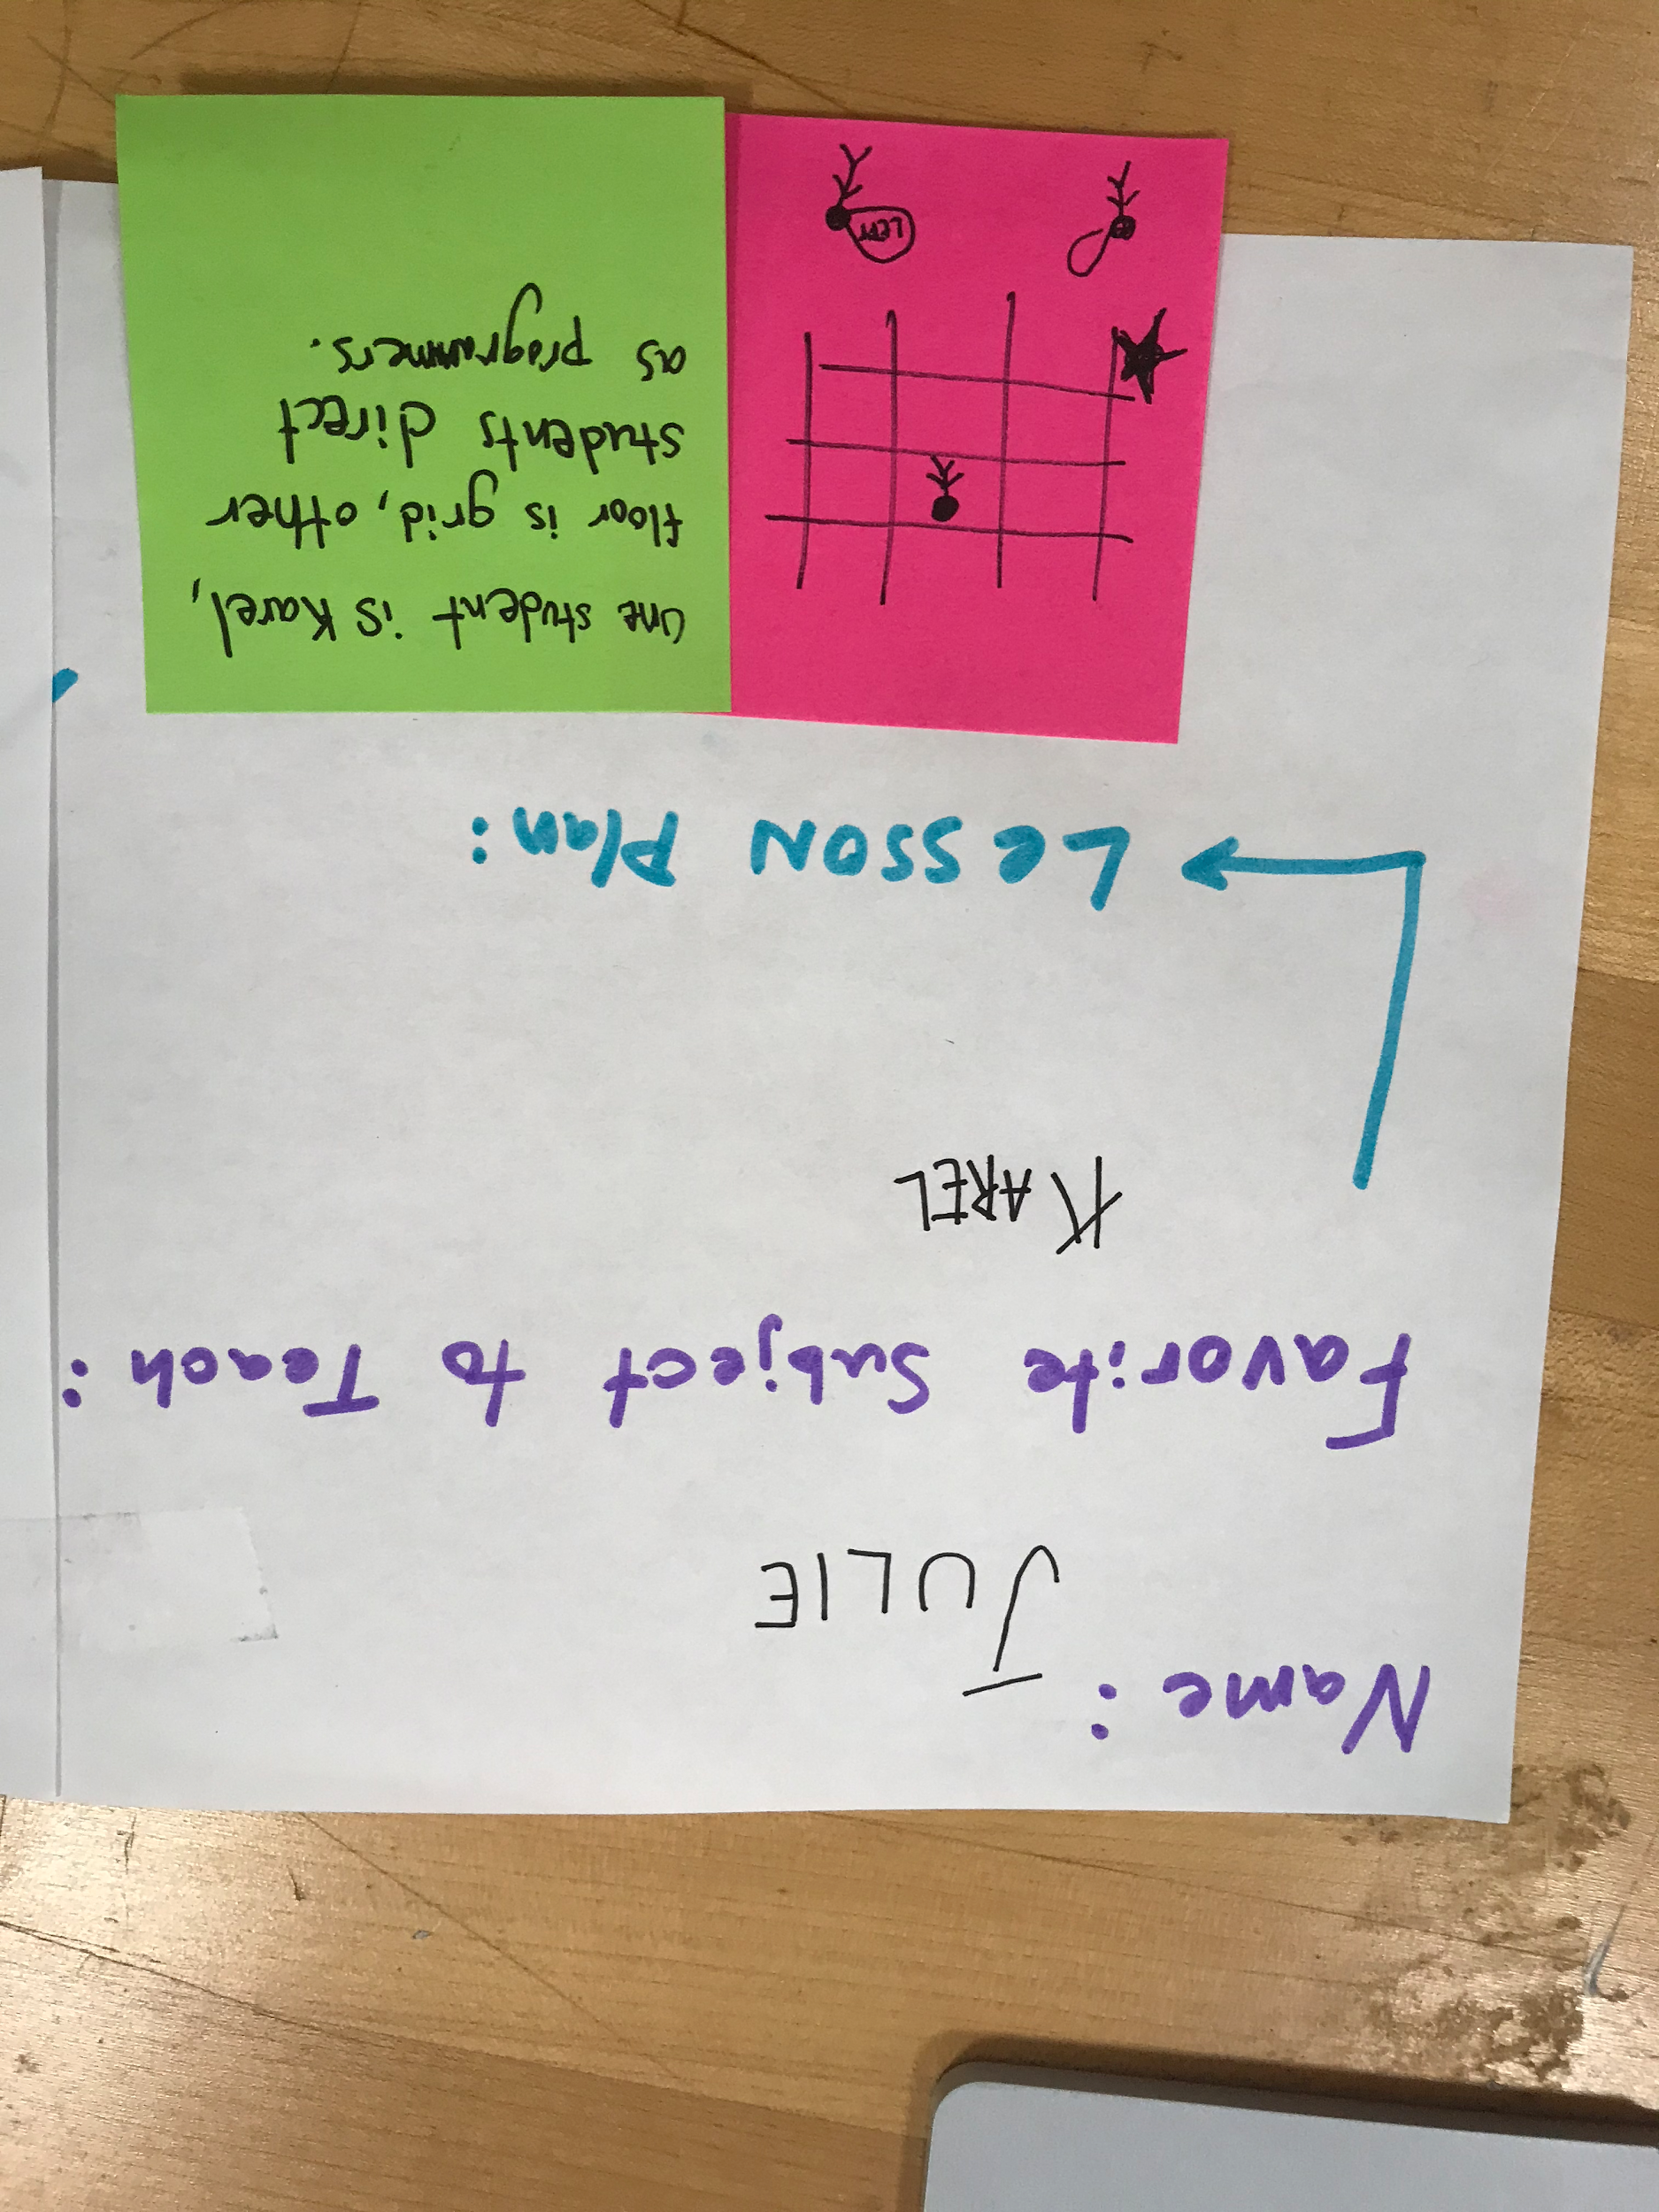 Name: JULIE
Favorite Subject to Teach:
KAREL
LESSON Plan:
LEFT
One student is Karel,
floor is grid, other
students direct
as programmers.